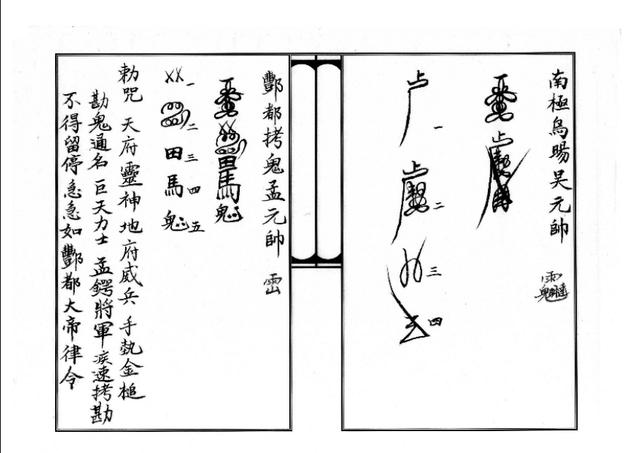 南極烏暘吳元帥
一
二
三
四
酆都拷鬼孟元帥
一
二
田 三
馬 四
五
勅咒 天府靈神地府威兵 手執金槌
勘鬼通名 巨天力士 孟鍔將軍 疾速拷勘
不得留停急急如酆都大帝律令